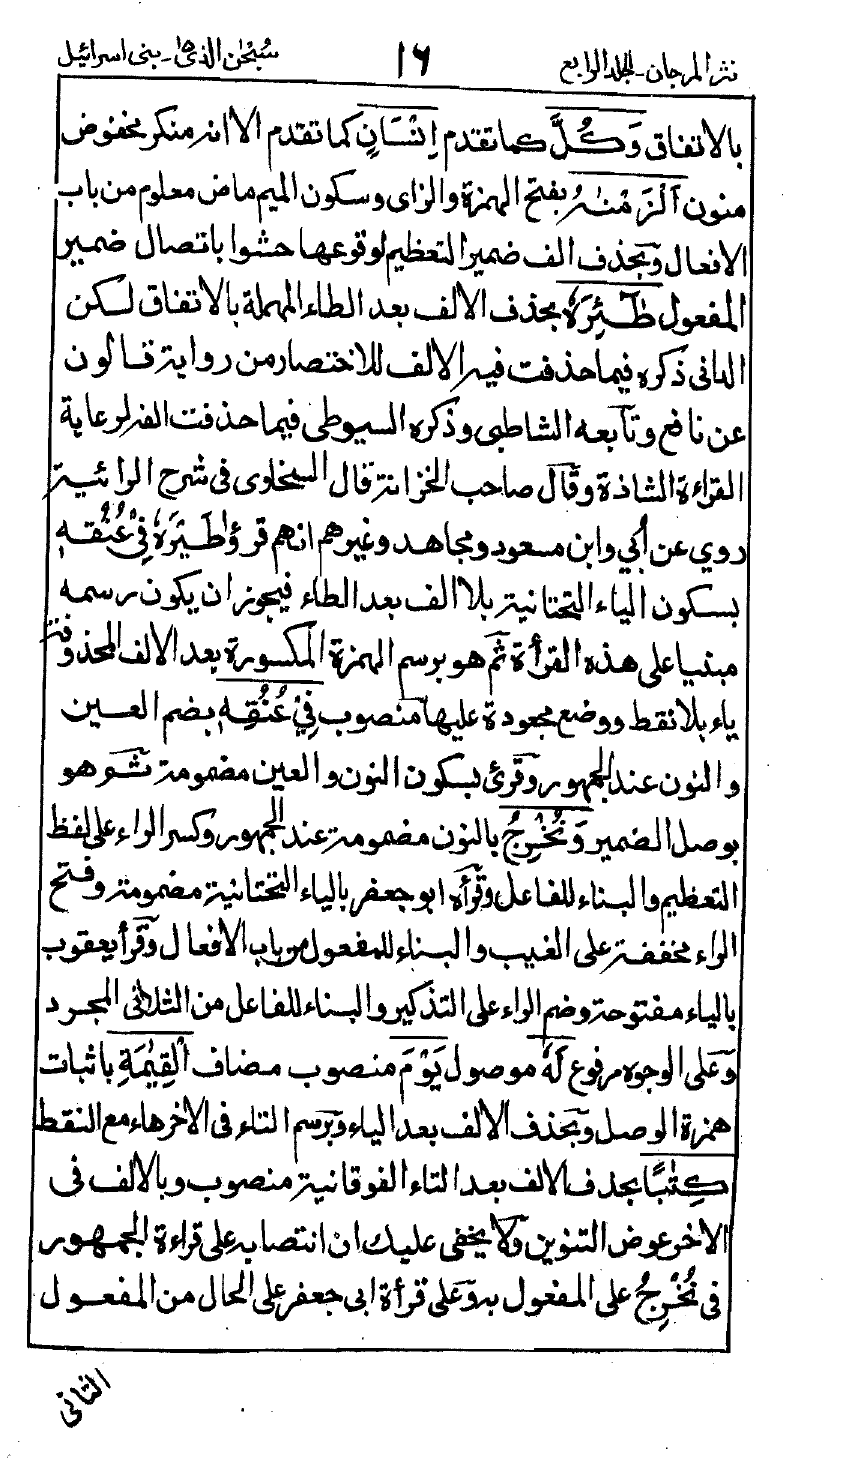 نثر المرجان - المجلد الرابع ١٦ سُبْحٰن الذى ١٥ - بنى اسرائيل
بالاتفاق وَكُلَّ كما تقدم اِنْسَانٍ كما تقدم الا انه منكر مخفوض
منون اَلْزَمْنٰهُ بفتح الهمزة والزاى وسكون الميم ماض معلوم من باب
الافعال وبحذف الف ضمير التعظيم لوقوعها حشوا باتصال ضمير
المفعول طٰٓئِرَهٗ بحذف الالف بعد الطاء المهملة بالاتفاق لكن
الدانى ذكره فيما حذفت فيه الالف للاختصار من رواية قالون
عن نافع وتابعه الشاطبى وذكره السيوطى فيما حذفت الفه لرعاية
القراءة الشاذة وقال صاحب الخزانة قال السخاوى فى شرح الرائية
روي عن اُبي وابن مسعود ومجاهد وغيرهم انهم قرؤا طَيْرَهٗ فِىْ عُنُقِهٖ
بسكون الياء التحتانية بلا الف بعد الطاء فيجوز ان يكون رسمه
مبنيا على هذه القرأة ثم هو برسم الهمزة المكسورة بعد الالف المحذوفة
ياء بلا نقط ووضع مجعودة عليها منصوب فِىْ عُنُقِهٖ بضم العين
والنون عند الجمهور وقرئ بسكون النون والعين مضمومة ثم هو
بوصل الضمير وَنُخْرِجُ بالنون مضمومة عند الجمهور وكسر الراء على لفظ
التعظيم والبناء للفاعل وقرأه ابو جعفر بالياء التحتانية مضمومة وفتح
الراء مخففة على الغيب والبناء للمفعول من باب الافعال وقرأ يعقوب
بالياء مفتوحة وضم الراء على التذكير والبناء للفاعل من الثلاثى المجرد
وعلى الوجوه مرفوع لَهٗ موصول يَوْمَ منصوب مضاف الْقِيٰمَةِ باثبات
همزة الوصل وبحذف الالف بعد الياء وبرسم التاء فى الاخر هاء مع النقط
كِتٰبًا بحذف الالف بعد التاء الفوقانية منصوب وبالالف فى
الاخر عوض التنوين ولا يخفى عليك ان انتصابه على قراءة الجمهور
فى نُخْرِجُ على المفعول به وعلى قرأة ابى جعفر على الحال من المفعول
الثانى